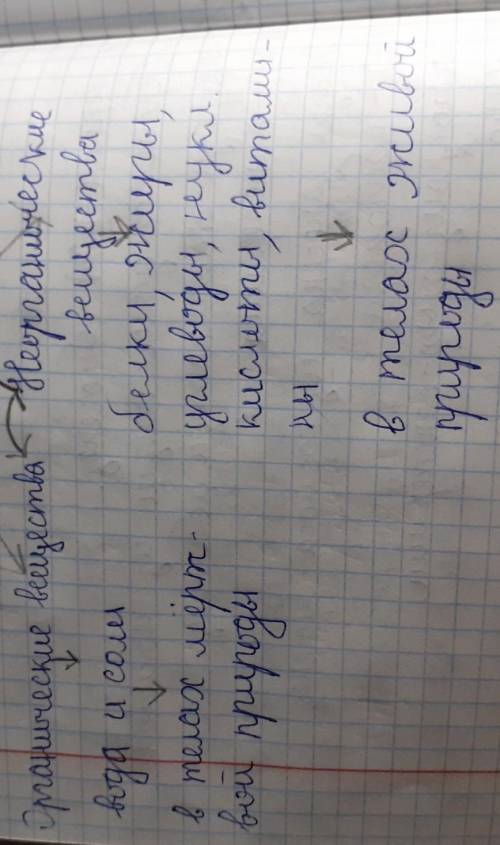 Органические вещества
вода и соли
в телах мёрт-
вой природы
Неорганические
вещества
белки, жиры,
углеводы, нукл.
кислоты, витами-
ны
в телах живой
природы